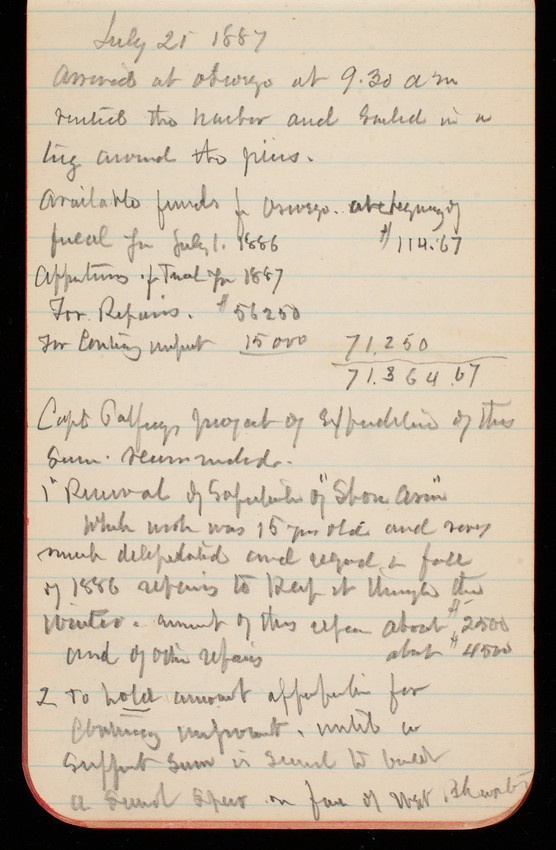 July 21 1887
Arrived at Oswego at 9.30 a m
visited the harbor and sailed in a
tug around the piers.
Available funds for Oswego. at beginning of
fiscal Yr July 1. 1886 $114.67
Appropriations for fiscal Yr 1887
For Repairs. $56250
For Continuing improvt 15000 71,250
71,364.67
Capt Palfreys project of Expenditure of this
Sum. recommended.
1st Removal of Superstructure of "Shore Arm"
which work was 15 yrs old and very
much delapidated and required in fall
of 1886 repairs to keep it through the
winter. amount of this repair about $2500
and of other repairs about $4500
2 To hold amount appropriation for
Continuing improvement. until a
sufficient sum is to build
a on face of West Bkwater